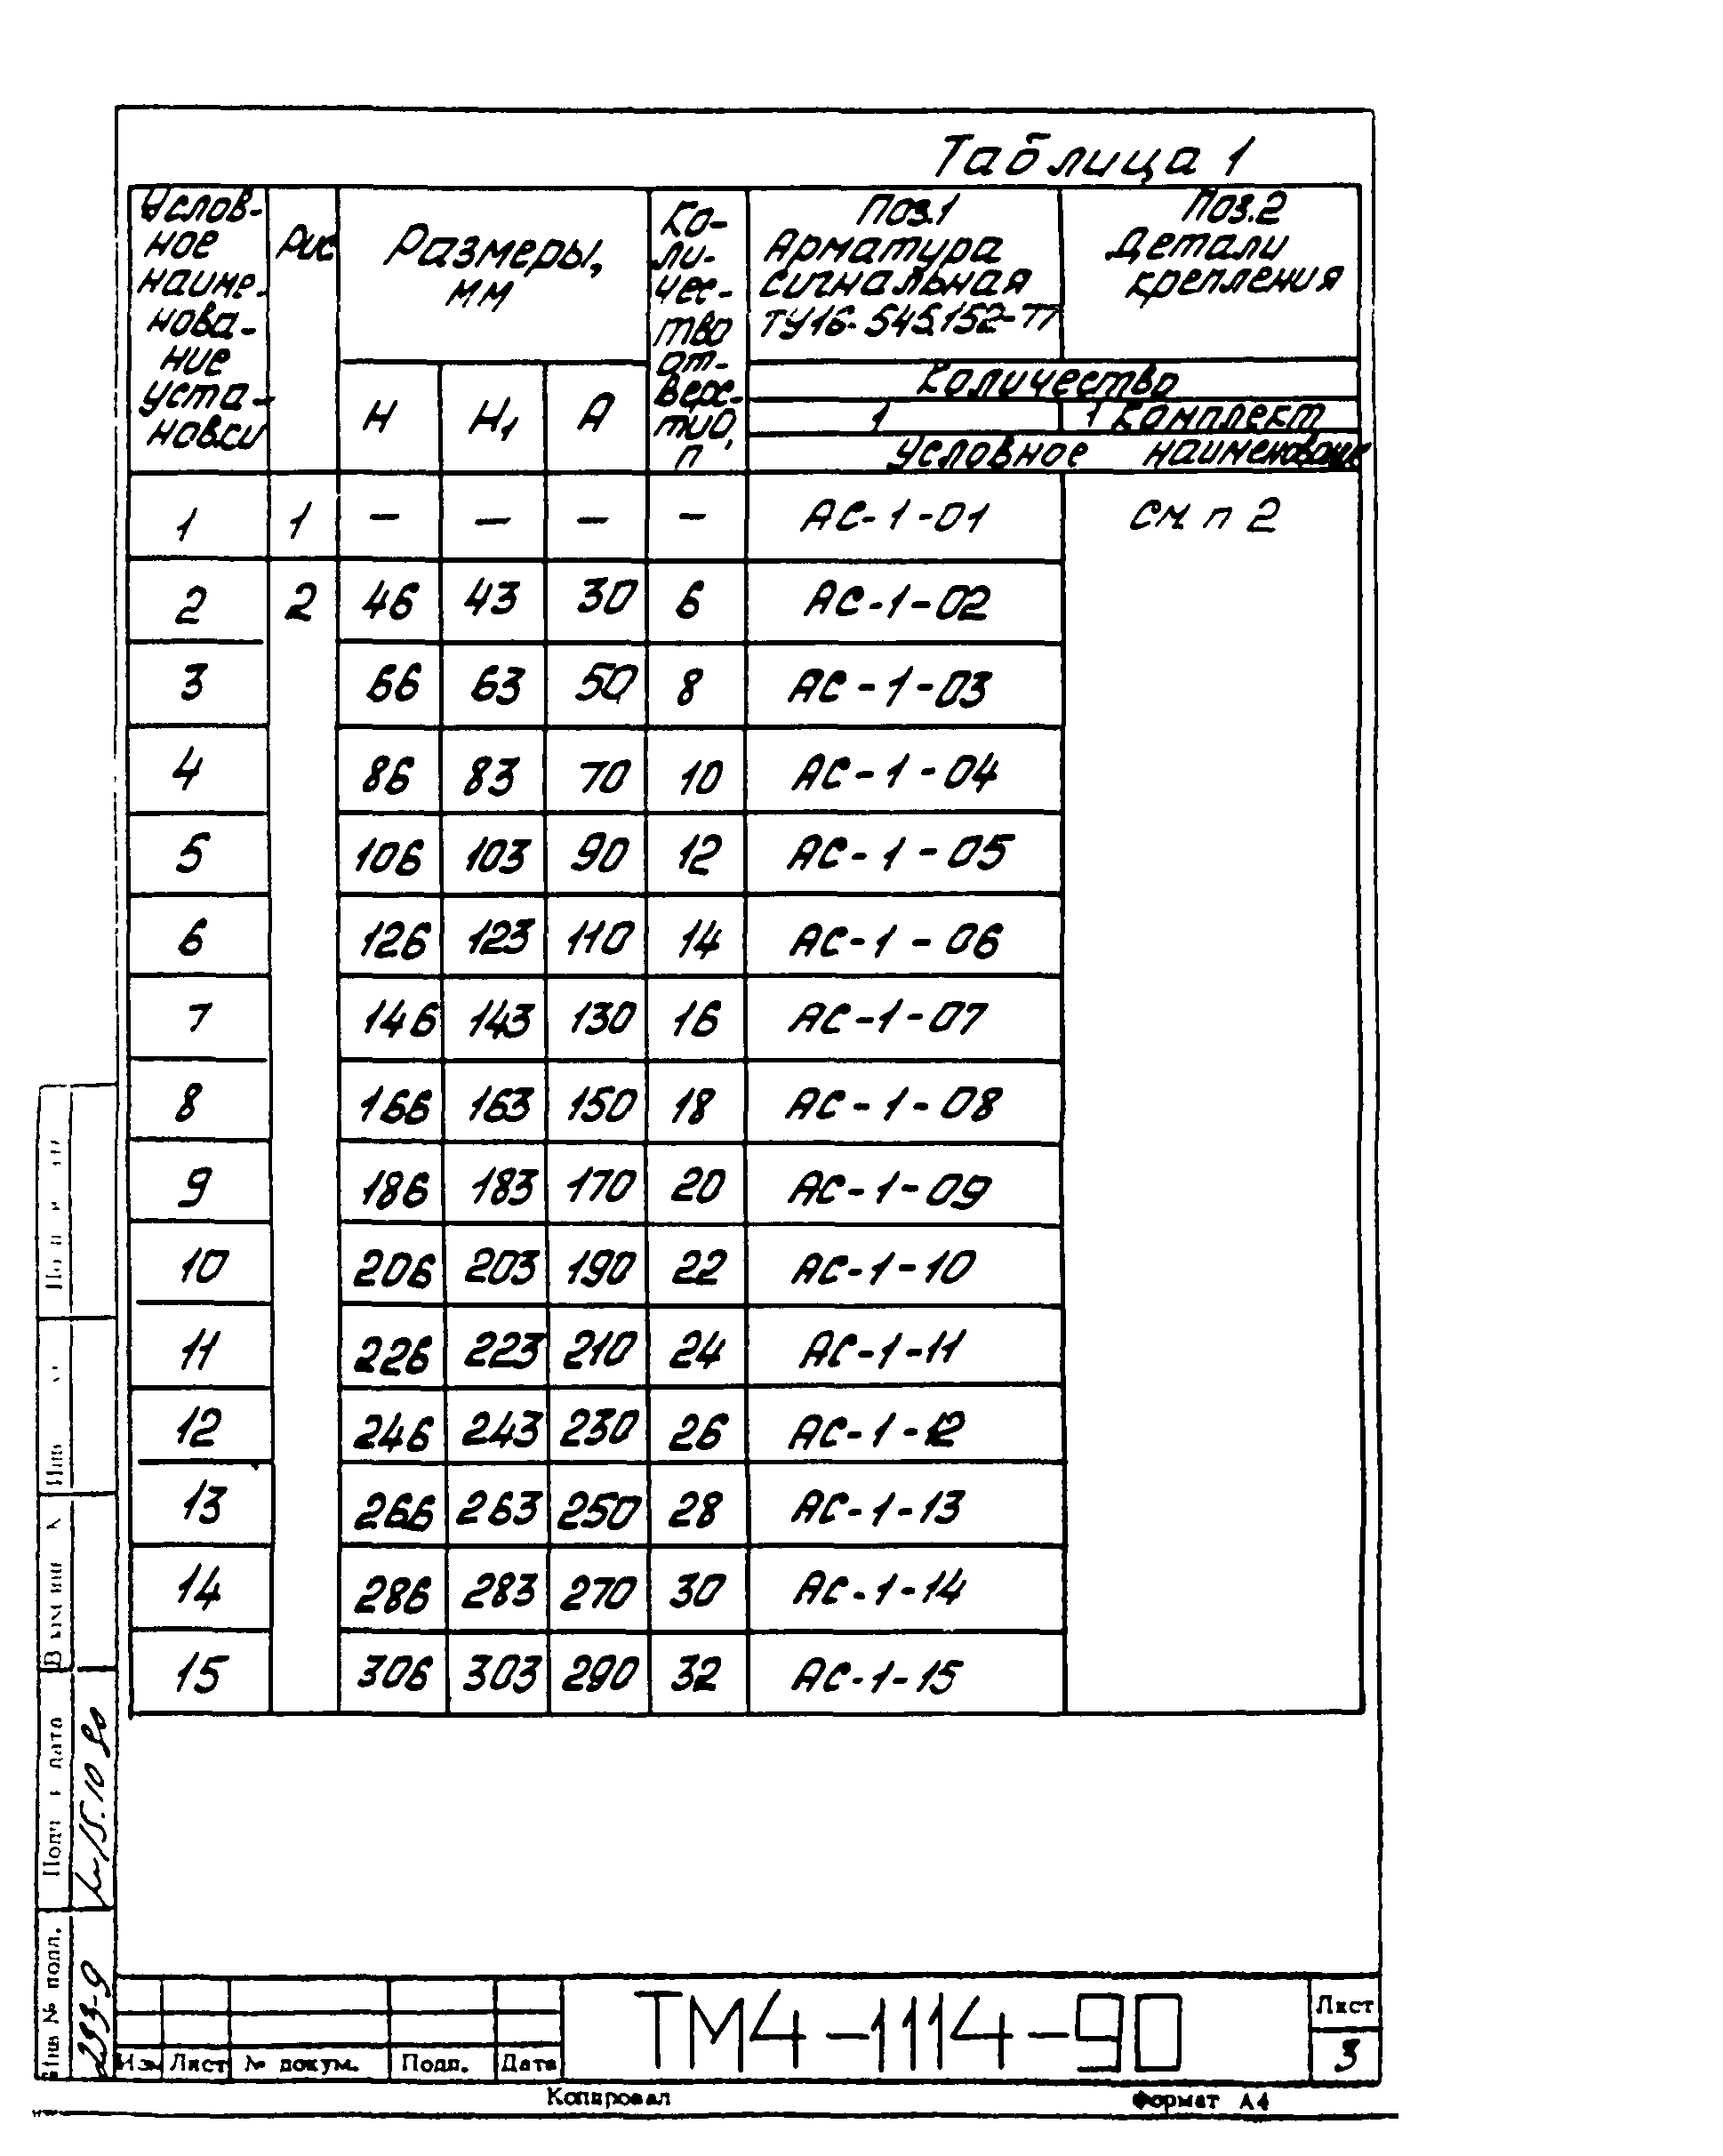 Таблица 1
Услов-
ное
наиме-
нова-
ние
уста-
новки
Рис
Размеры,
мм
Ко-
ли-
чес-
тво
от-
верс-
тий,
п
Поз.1
Арматура
сигнальная
ТУ16-545.152-77
Поз.2
Детали
крепления
H H1 A
Количество
1 1 комплект
Условное наименование
1 1 – – – – АС-1-01 См п 2
2 2 46 43 30 6 АС-1-02
3 66 63 50 8 АС-1-03
4 86 83 70 10 АС-1-04
5 106 103 90 12 АС-1-05
6 126 123 110 14 АС-1-06
7 146 143 130 16 АС-1-07
8 166 163 150 18 АС-1-08
9 186 183 170 20 АС-1-09
10 206 203 190 22 АС-1-10
11 226 223 210 24 АС-1-11
12 246 243 230 26 АС-1-12
13 266 263 250 28 АС-1-13
14 286 283 270 30 АС-1-14
15 306 303 290 32 АС-1-15
Подп и дата
15.10.90
Инв № подл.
293-9
Изм Лист № докум. Подп. Дата
ТМ4-1114-90
Лист
3
Копировал Формат А4